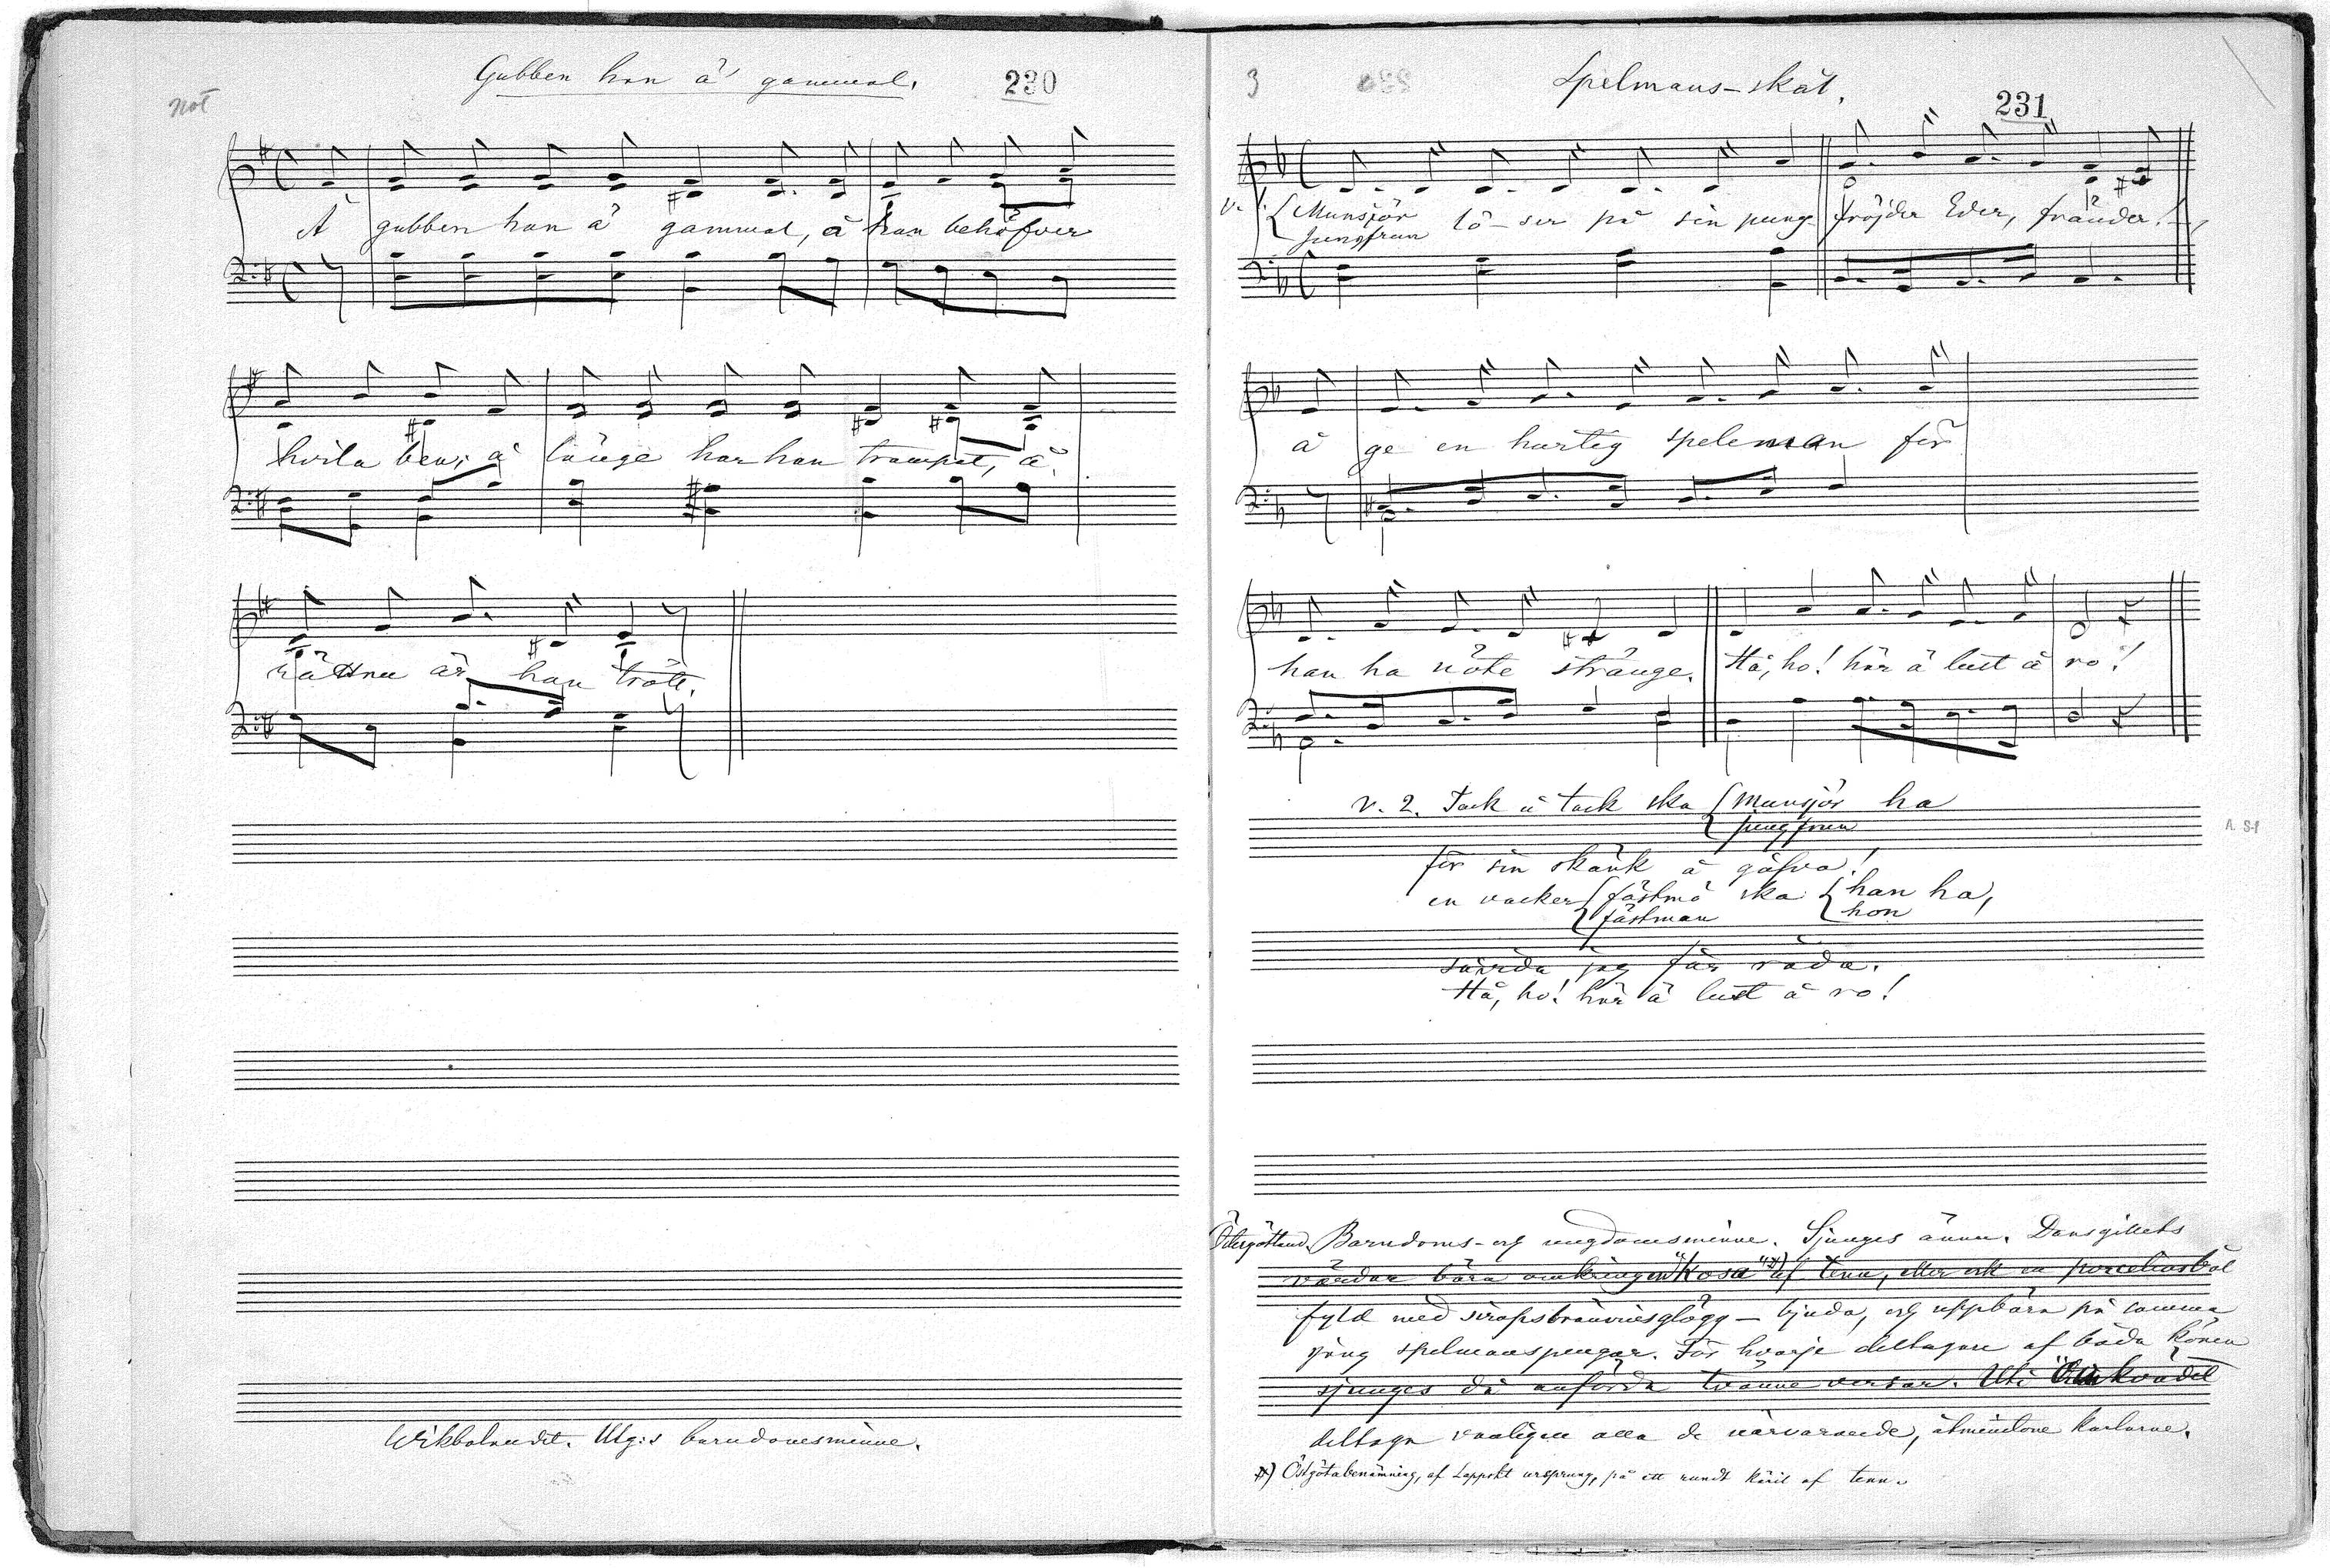 not
Gubben han ä' gammal.
230
Å gubben han ä' gammal, å han behöfver
hvila ben; å länge har han trampat, å
rättnu är han trött.
Wikbolandet. Ulg:s barndomsminne.
3
Spelmans-skål.
231
v. 1. Munsjör lö-ser på sin pung fröjder Eder, fränder!
Jungfrun
å ge en hurtig speleman för
han ha nöte stränge. Hå, ho! här ä lust å ro!
v. 2. Tack å tack ska Munsjör ha
jungfrun
för sin skänk å gåfva!
en vacker fästmö ska han ha,
fästman hon
såvida jag får råda.
Hå, ho! här ä lust å ro!
A. S-1
Östergötland. Barndoms- och ungdomsminne. Sjunges ännu. Dansgillets
värdar bära omkring en "kosa" *) af tenn, eller ock en porcelinsbål
fyld med sirapsbrännvinsglögg — bjuda, och uppbära på samma
gång spelmanspengar. För hvarje deltagare af båda könen
sjunges då anförda tvänne versar. Uti Omkvädet
deltaga vanligen alla de närvarande, åtminstone karlarne.
*) Östgötabenämning, af Lappskt ursprung, på ett rundt käril af tenn.